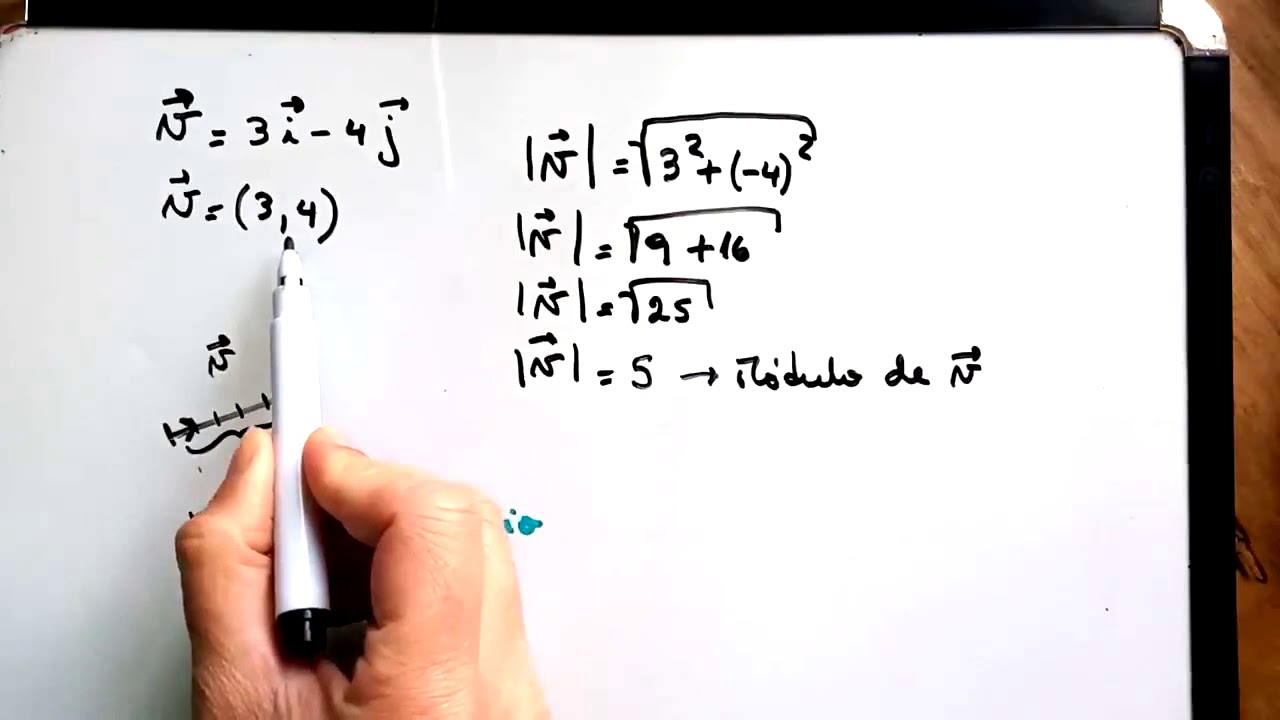 v⃗ = 3i⃗ - 4j⃗
v⃗ = (3,4)
v⃗
|v⃗| = √3² + (-4)²
|v⃗| = √9 + 16
|v⃗| = √25
|v⃗| = 5 → Módulo de v⃗